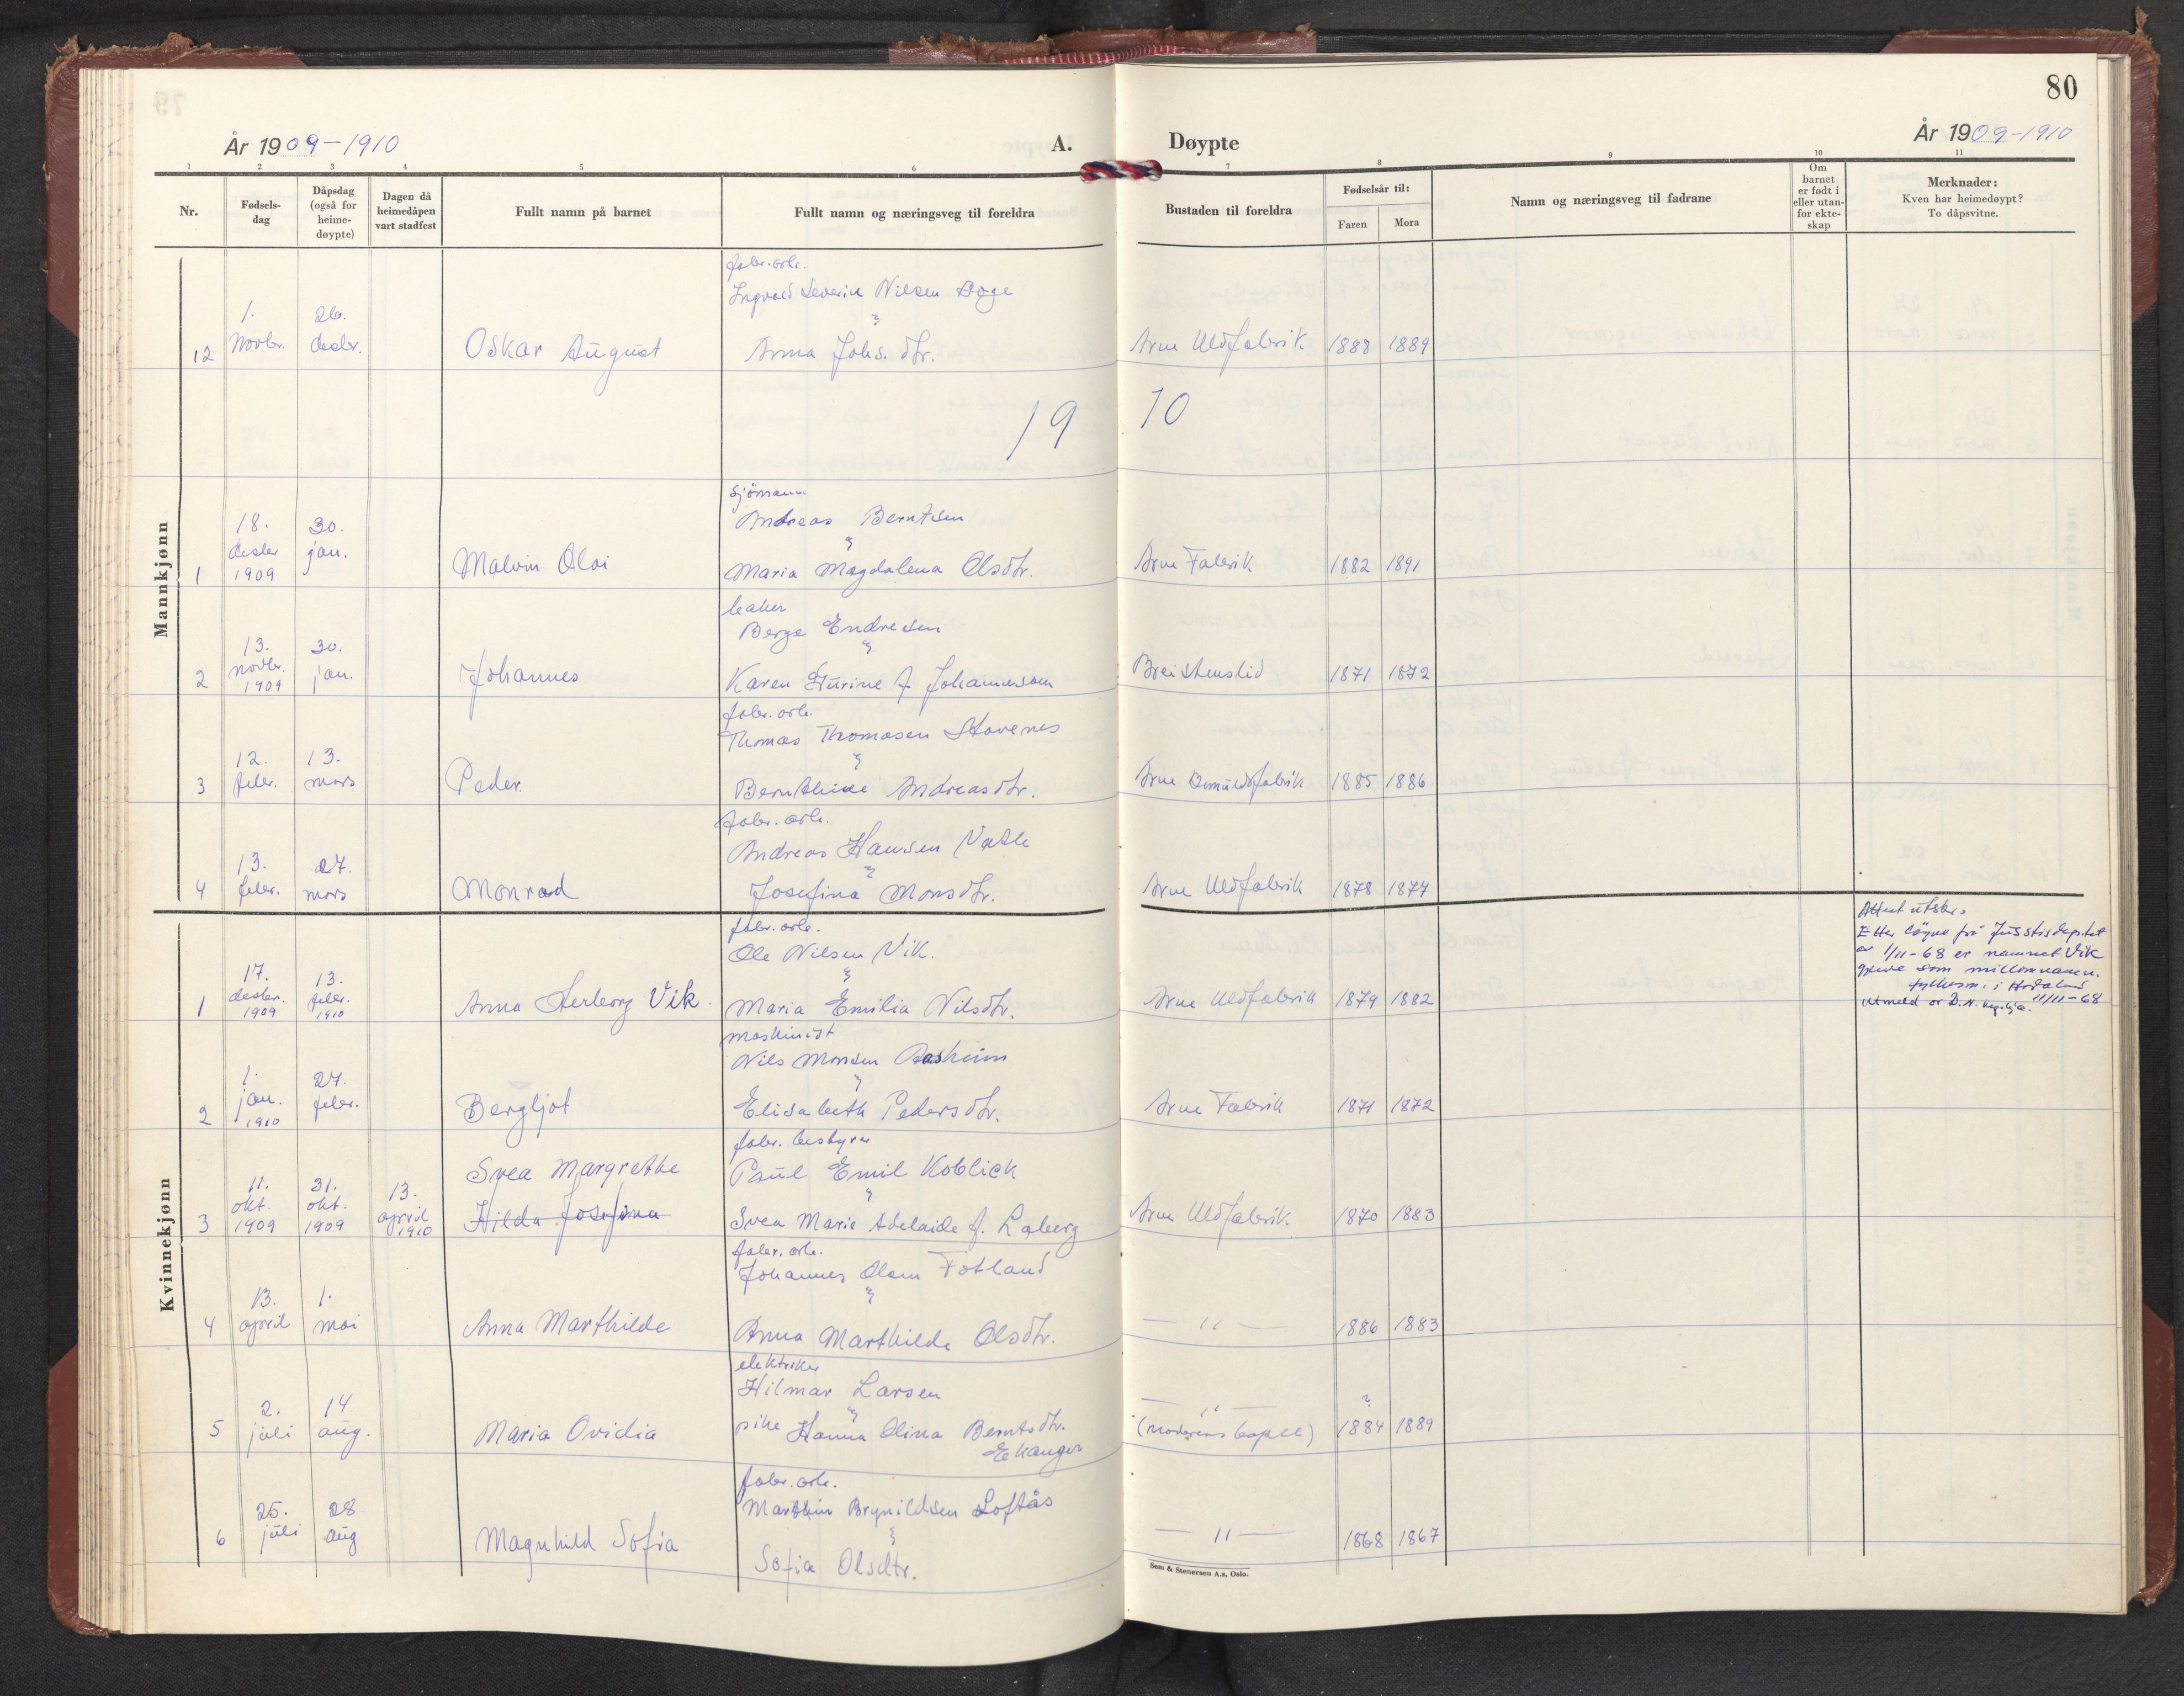 80
År 1909-1910
A.
Døypte
År 1909-1910
1 2 3 4 5 6 7 8 9 10 11
Nr.
Fødsels-
dag
Dåpsdag
(også for
heime-
døypte)
Dagen då
heimedåpen
vart stadfest
Fullt namn på barnet
Fullt namn og næringsveg til foreldra
Bustaden til foreldra
Fødselsår til:
Faren Mora
Namn og næringsveg til fadrane
Om
barnet
er født i
eller utan-
for ekte-
skap
Merknader:
Kven har heimedøypt?
To dåpsvitne.
Mannkjønn
fabr. arb.
Ingvald Severin Nilsen
1. 26.
12 novbr. desbr. Oskar August Anna Johs. dtr. Arne Uldfabrik 1888 1889
19 10
sjömann
18. 30. Andreas Berntsen
desbr jan.
1 1909 Malvin Olai Maria Magdalena Olsdtr. Arne Fabrik 1882 1891
baker
Berge Endresen
13. 30.
novbr. jan.
2 1909 Johannes Karen Gurine f. Johannesson Breistenslid 1871 1872
fabr. arb.
Thomas Thomasen Stavenes
12. 13.
3 febr. mars Peder Berntine Andreasdtr. Arne Domuldfabrik 1885 1886
fabr. arb.
Andreas Hansen Vatle
13. 27.
4 febr. mars Monrad Josefina Monsdtr. Arne Uldfabrik 1878 1877
Kvinnekjønn
fabr. arb.
Ole Nilsen Vik.
17. 13.
desbr. febr.
1 1909 1910 Anna Herborg Vik. Maria Emilia Nilsdtr. Arne Uldfabrik 1879 1882
Attest utskr.
Etter löyve frå Justisdep.tet
av 1/11-68 er namnet Vik
som millomnamn.
fylkesm. i Hordaland
11/11-68
Utmeld or D. N. kyrkja.
maskinist
Nils Monsen Aasheim
1. 27.
jan. febr.
2 1910 Bergljot Elisabeth Pedersdtr. Arne Fabrik 1871 1872
fabr. bestyrer
Svea Margrethe Paul Emil Koblick
11. 31. 13.
okt. okt. april
3 1909 1909 1910 Hilda Josefina Svea Marie Adelaide f. Laberg Arne Uldfabrik. 1870 1883
fabr. arb.
Johannes Olsen Fotland
13. 1.
4 april mai Anna Marthilde Anna Marthilde Olsdtr. — " — 1886 1883
elektriker
Hilmar Larsen
— " — ?
2. 14
5 juli aug. Maria Ovidia pike Hanna Olina Berntsdtr. (moderens bopel) 1884 1889
Ekanger
fabr. arb.
Marthin Brynildsen Loftås
25. 28.
6 juli aug Magnhild Sofia — " — 1868 1867
Sofia Olsdtr.
Sem & Stenersen A.s, Oslo.